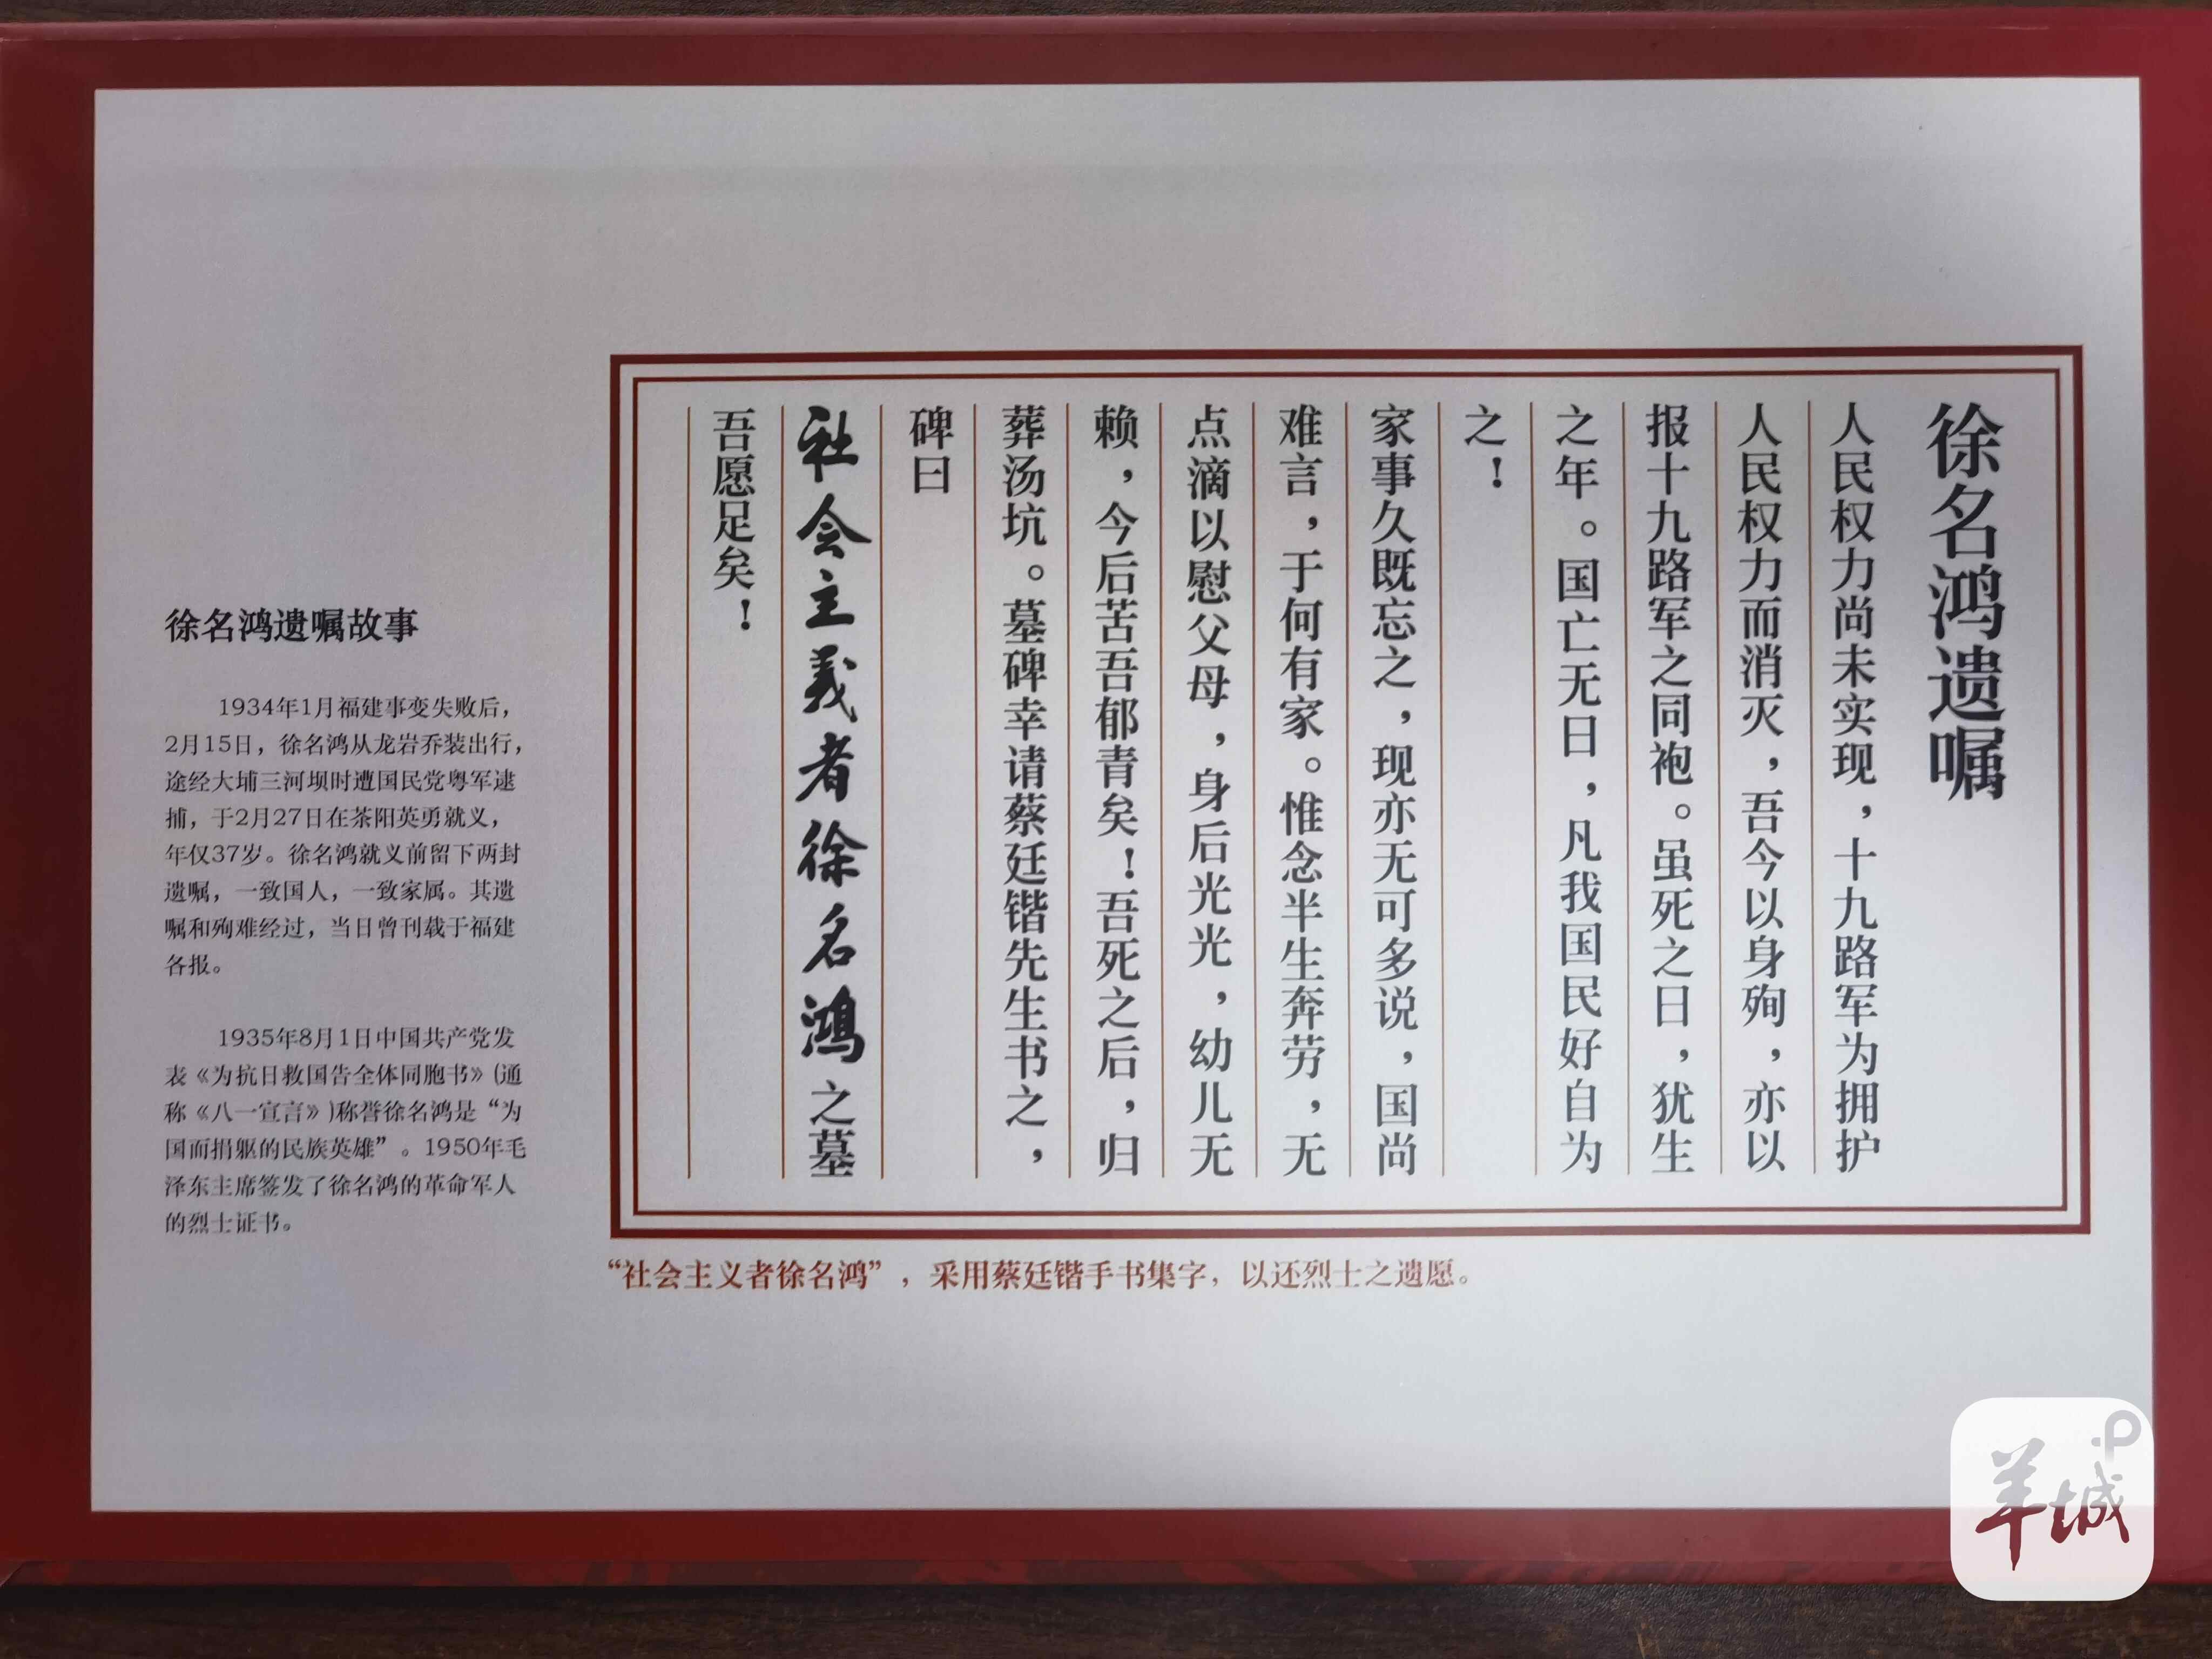 徐名鸿遗嘱
人民权力尚未实现，十九路军为拥护
人民权力而消灭，吾今以身殉，亦以
报十九路军之同袍。虽死之日，犹生
之年。国亡无日，凡我国民好自为
之！
家事久既忘之，现亦无可多说，国尚
难言，于何有家。惟念半生奔劳，无
点滴以慰父母，身后光光，幼儿无
赖，今后苦吾郁青矣！吾死之后，归
葬汤坑。墓碑幸请蔡廷锴先生书之，
碑曰
社会主義者徐名鸿之墓
吾愿足矣！
“社会主义者徐名鸿”，采用蔡廷锴手书集字，以还烈士之遗愿。
徐名鸿遗嘱故事
1934年1月福建事变失败后，
2月15日，徐名鸿从龙岩乔装出行，
途经大埔三河坝时遭国民党粤军逮
捕，于2月27日在茶阳英勇就义，
年仅37岁。徐名鸿就义前留下两封
遗嘱，一致国人，一致家属。其遗
嘱和殉难经过，当日曾刊载于福建
各报。
1935年8月1日中国共产党发
表《为抗日救国告全体同胞书》(通
称《八一宣言》)称誉徐名鸿是“为
国而捐躯的民族英雄”。1950年毛
泽东主席签发了徐名鸿的革命军人
的烈士证书。
羊城